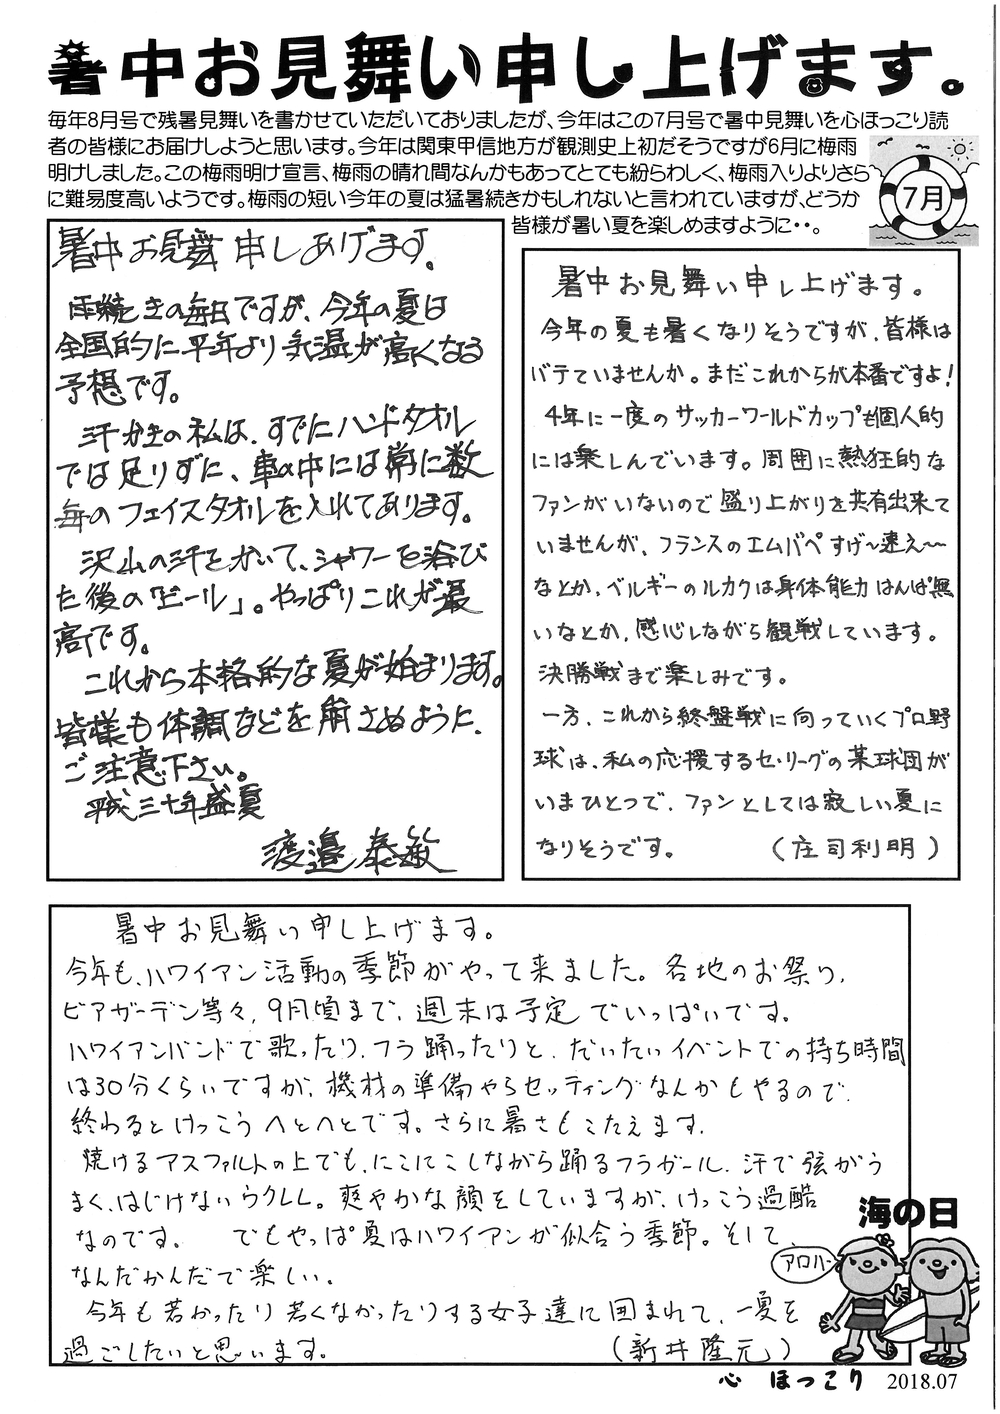 暑中お見舞い申し上げます。
毎年8月号で残暑見舞いを書かせていただいておりましたが、今年はこの7月号で暑中見舞いを心ほっこり読
者の皆様にお届けしようと思います。今年は関東甲信地方が観測史上初だそうですが6月に梅雨
明けしました。この梅雨明け宣言、梅雨の晴れ間なんかもあってとても紛らわしく、梅雨入りよりさら
に難易度高いようです。梅雨の短い今年の夏は猛暑続きかもしれないと言われていますが、どうか
皆様が暑い夏を楽しめますように・・。
7月
暑中お見舞申しあげます。
雨続きの毎日ですが、今年の夏は
全国的に平年より気温が高くなる
予想です。
汗かきの私は、すでにハンドタオル
では足りずに、車の中には常に数
毎のフェイスタオルを入れてあります。
沢山の汗をかいて、シャワーを浴び
た後の「ビール」。やっぱりこれが最
高です。
これから本格的な夏が始まります。
皆様も体調などを崩さぬように
ご注意下さい。
平成三十年盛夏
渡邉泰敏
暑中お見舞い申し上げます。
今年の夏も暑くなりそうですが、皆様は
バテていませんか。まだこれからが本番ですよ!
4年に一度のサッカーワールドカップも個人的
には楽しんでいます。周囲に熱狂的な
ファンがいないので盛り上がりを共有出来て
いませんが、フランスのエムバペすげ〜速え〜〜
なとか、ベルギーのルカクは身体能力はんぱ無
いなとか、感心しながら観戦しています。
決勝戦まで楽しみです。
一方、これから終盤戦に向っていくプロ野
球は、私の応援するセ・リーグの某球団が
いまひとつで、ファンとしては寂しい夏に
なりそうです。 (庄司利明)
暑中お見舞い申し上げます。
今年も、ハワイアン活動の季節がやって来ました。各地のお祭り、
ビアガーデン等々、9月頃まで、週末は予定でいっぱいです。
ハワイアンバンドで歌ったり、フラ踊ったりと、だいたいイベントでの持ち時間
は30分くらいですが、機材の準備やらセッティングなんかもやるので、
終わるとけっこうヘトヘトです。さらに暑さもこたえます。
焼けるアスファルトの上でも、にこにこしながら踊るフラガール、汗で弦がう
まく、はじけないウクレレ。爽やかな顔をしていますが、けっこう過酷
なのです。 でもやっぱ夏はハワイアンが似合う季節。そして、
なんだかんだで楽しい。
今年も若かったり若くなかったりする女子達に囲まれて、一夏を
過ごしたいと思います。 (新井隆元)
海の日
アロハー
心 ほっこり 2018.07